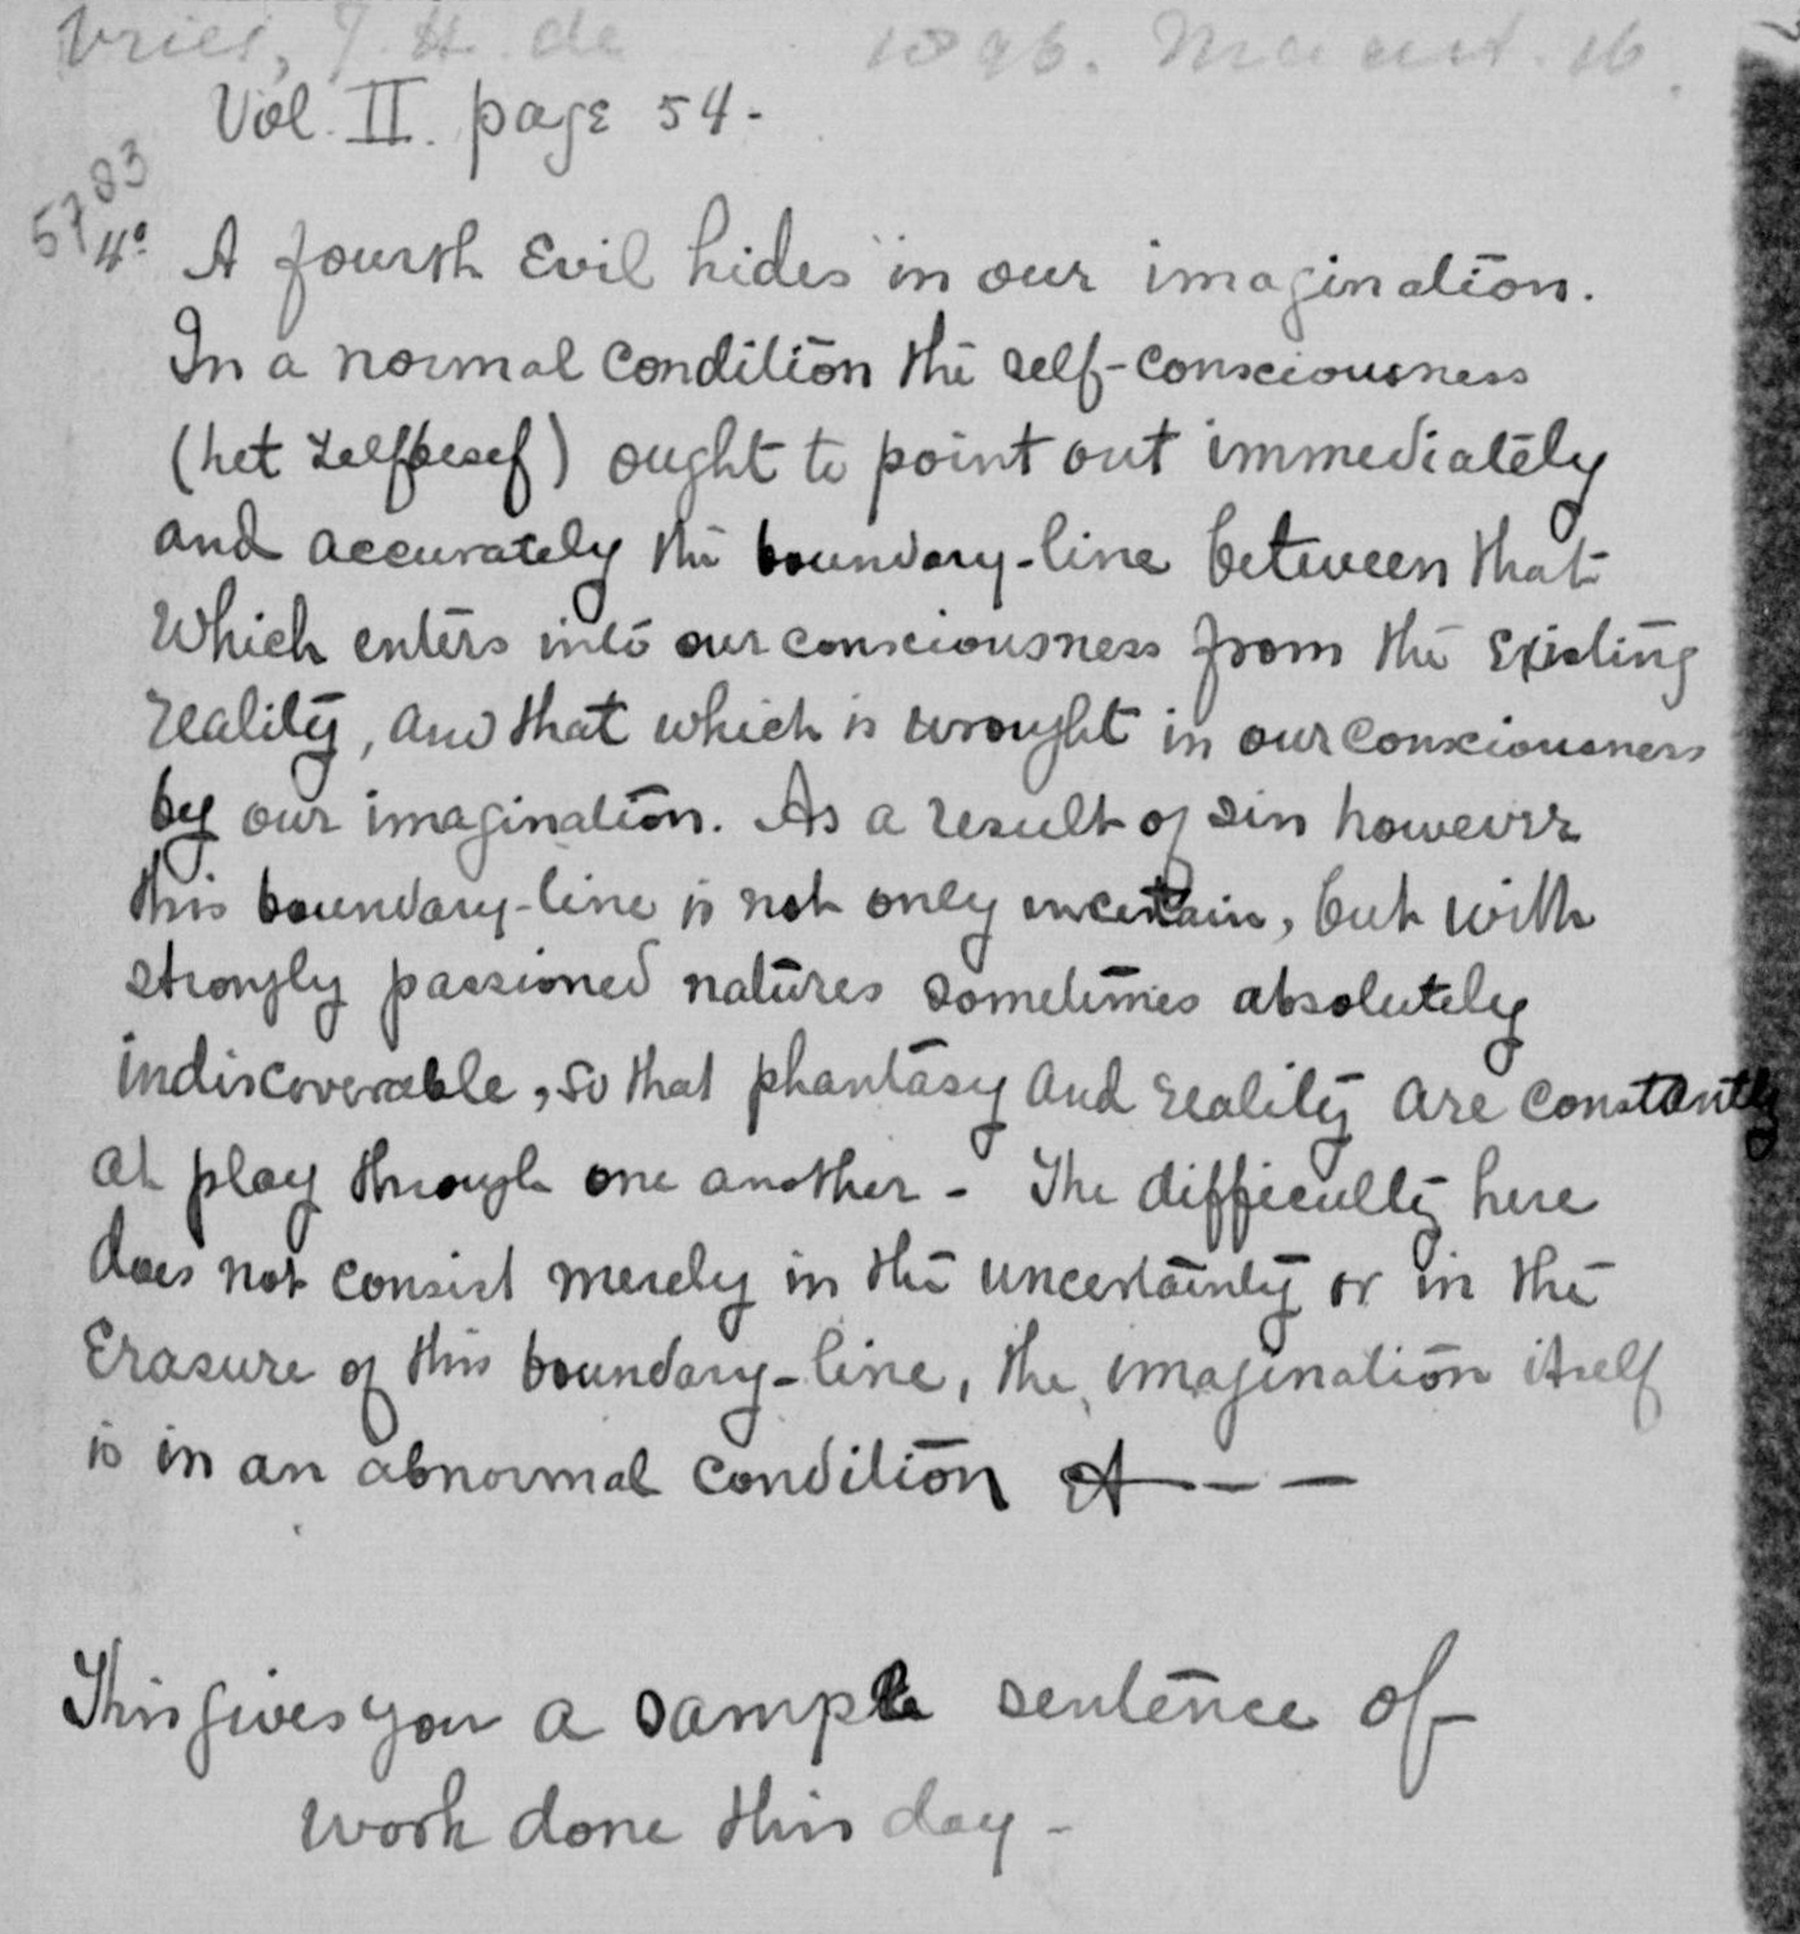 Vries, J. H. de 1896. Maart. 16.
Vol. II. page 54-
5783
4° A fourth Evil hides in our imagination.
In a normal condition the self-consciousness
(het zelfbesef) ought to point out immediately
and accurately the boundary-line between that
which enters into our consciousness from the Existing
reality, and that which is wrought in our consciousness
by our imagination. As a result of sin however
this boundary-line is not only uncertain, but with
strongly passioned natures sometimes absolutely
indiscoverable, so that phantasy and reality are constantly
at play through one another - The difficulty here
does not consist merely in the uncertainty or in the
Erasure of this boundary-line, the imagination itself
is in an abnormal condition
This gives you a sample sentence of
work done this day -